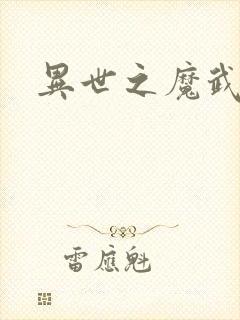 異世之魔武
雷應魁